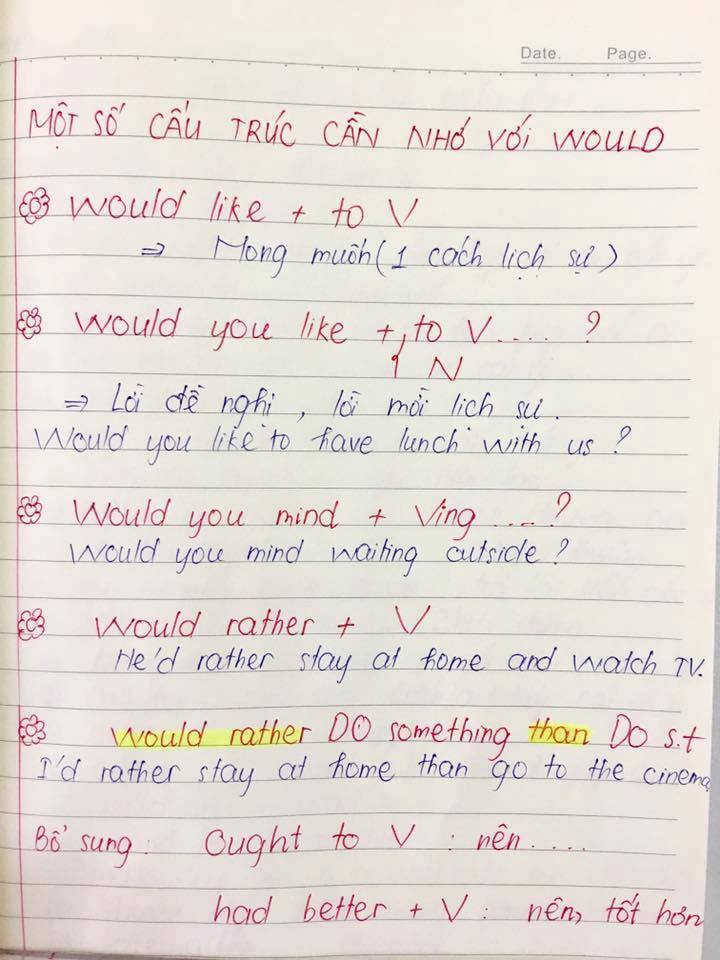 Date. Page.
MỘT SỐ CẤU TRÚC CẦN NHỚ VỚI WOULD
Would like + to V
⇒ Mong muốn (1 cách lịch sự)
Would you like + to V.... ?
N
⇒ Lời đề nghị, lời mời lịch sự.
Would you like to have lunch with us ?
Would you mind + Ving ....?
Would you mind waiting outside ?
Would rather + V
He'd rather stay at home and watch TV.
Would rather DO something than DO s.t
I'd rather stay at home than go to the cinema
Bổ sung: Ought to V : nên....
had better + V : nên, tốt hơn